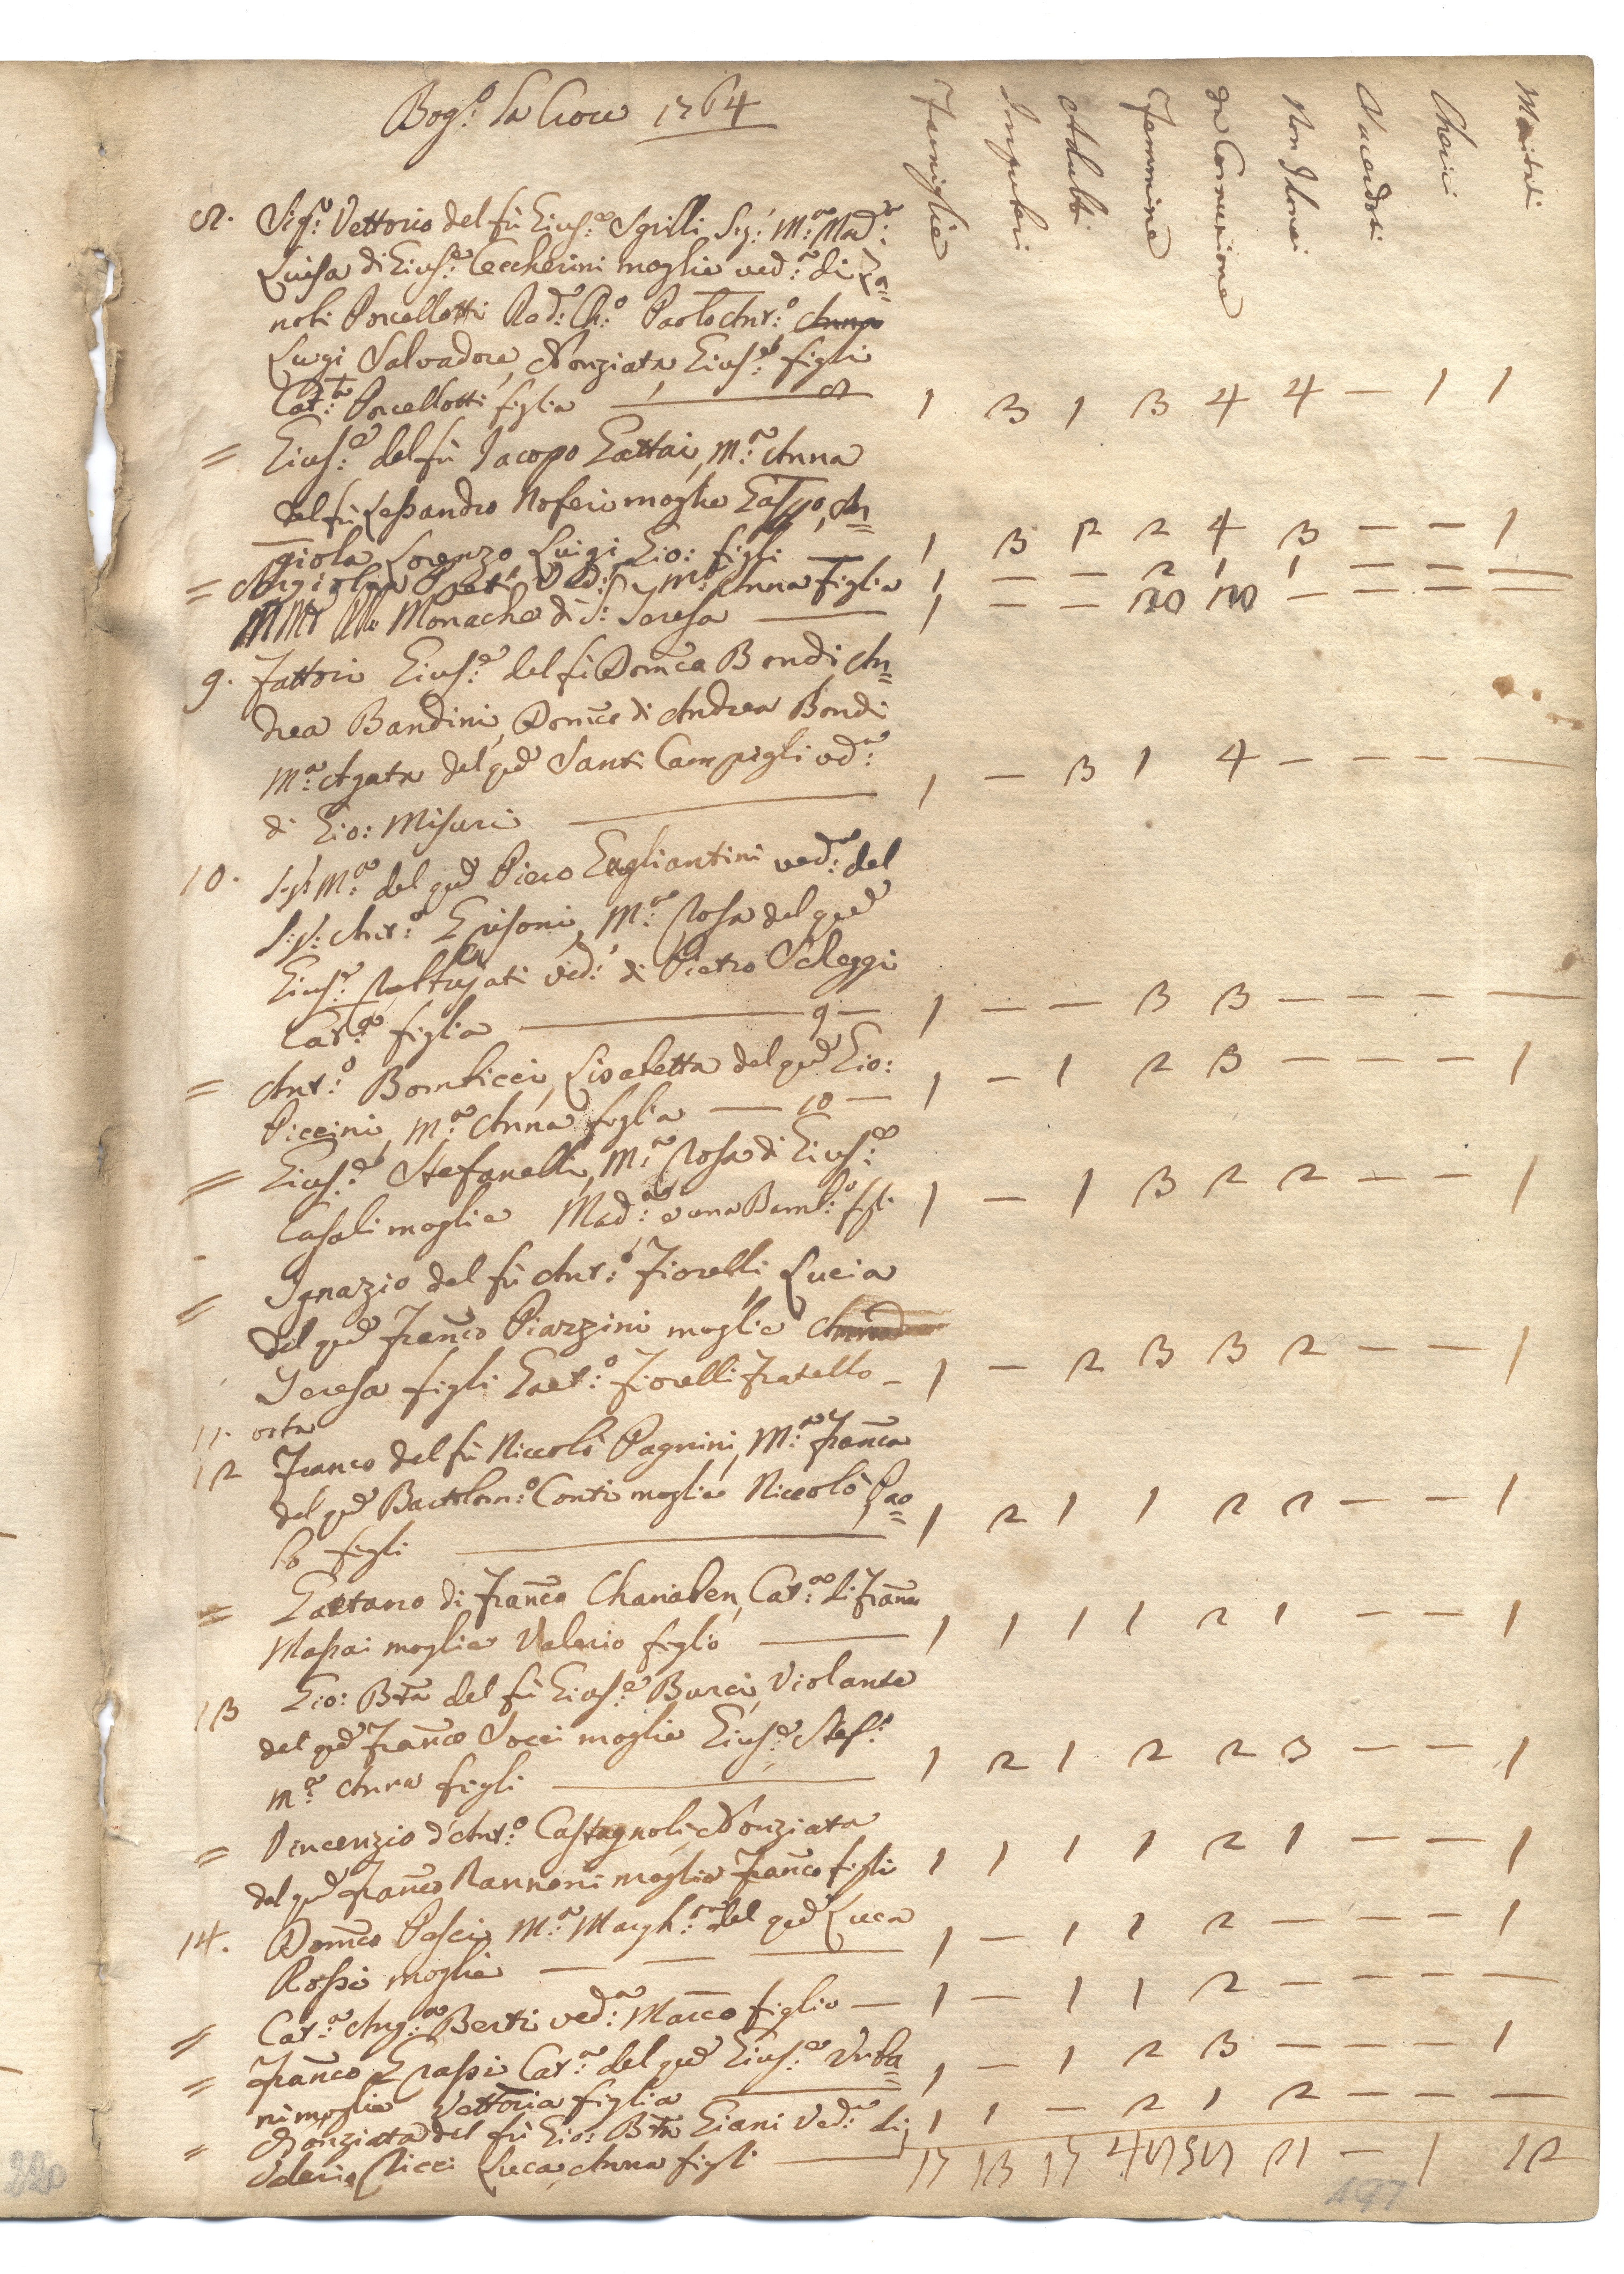 Bog:o Sa Croce 1764
Famiglie Impuberi Adulti Femmine da Comunione Non Idonei Sacerdoti Cherici Mariti
8. Sig:r Vettorio del fù Gius:e Sgrilli Sig: M:a Mad:a
Luisa di Gius:e Ceccherini moglie ved:a di Za=
nobi Porcellotti Rad: Ch:o Paolo Ant:o Anna
Luigi Salvadore, Nonziata Gius:e figli
Cat:a Porcellotti figlia — 8 1 3 1 3 4 4 — 1 1
= Gius:e del fù Jacopo Gattai, M:a Anna
del fù Lessandro Noferi moglie Gaspo, An=
giola Lorenzo, Luigi, Gio: figli — 1 3 2 2 4 3 — — 1
= Angiola Ved: M:a Anna Figlia 1 — — 2 1 1 — — —
Monache di S: Teresa — 1 — — 20 20 — — — —
9. Fattori Gius:e del fù Dom̃co Bondi, An=
drea Bandini, Dom̃co di Andrea Bondi
M:a Agata del qd Santi Campigli vd:a
di Gio: Misuri — 1 — 3 1 4 — — — —
10. Sig:a M:a del qd Piero Gagliantini ved:a del
S:r: Ant:o Grisoni, M:a Rosa del qd
Gius:e ved: di Pietro Scheggi
Cat:a figlia — 9 — 1 — — 3 3 — — — —
= Ant:o Bombicci, Lisabetta del qd Gio:
Piccini, M:a Anna figlia — 10 — 1 — 1 2 3 — — — 1
= Gius:e Stefanelli, M:a Rosa di Gius:e
Casali moglie Mad:a e una Bamb:a figli 1 — 1 3 2 2 — — 1
= Ignazio del fù Ant:o Fiorelli, Lucia
del qd Franc̃o Piazzini moglie
Teresa figli Gaet:o Fiorelli fratello — 1 — 2 3 3 2 — — 1
11. orto
12 Franco del fù Niccolò Pagnini, M:a Franc̃a
del qd Bartolom:o Conti moglie Niccolò Pao=
lo figli — 1 2 1 1 2 2 — — 1
= Gaetano di Franc̃o Chanaben, Cat:a di Franc̃o
Massai moglie Valerio figlio — 1 1 1 1 2 1 — — 1
13 Gio: Bta del fù Gius:e Burci, Violante
del qd Franc̃o Socci moglie Gius:e Stef:o
M:a Anna figli — 1 2 1 2 2 3 — — 1
= Vincenzio d'Ant:o Castagnoli, Nonziata
del qd Franc̃o Nannoni moglie Franc̃o figli 1 1 1 1 2 1 — — 1
14. Dom̃co Pasci, M:a Margh:a del qd Luca
Rossi moglie — 1 — 1 1 2 — — — 1
= Cat:a Ang:a Berti ved:a Marco figlio — 1 — 1 1 2 — — — —
= Franc̃o Grassi Cat:a del qd Gius:e Urba=
ni moglie Vettoria figlia — 1 — 1 2 3 — — — 1
= Nonziata del fù Gio: Bta Giani Ved:a di
Valerio Ricci Luca, Anna figli — 1 1 — 2 1 2 — — —
17 13 17 21 — 1 12
220
497